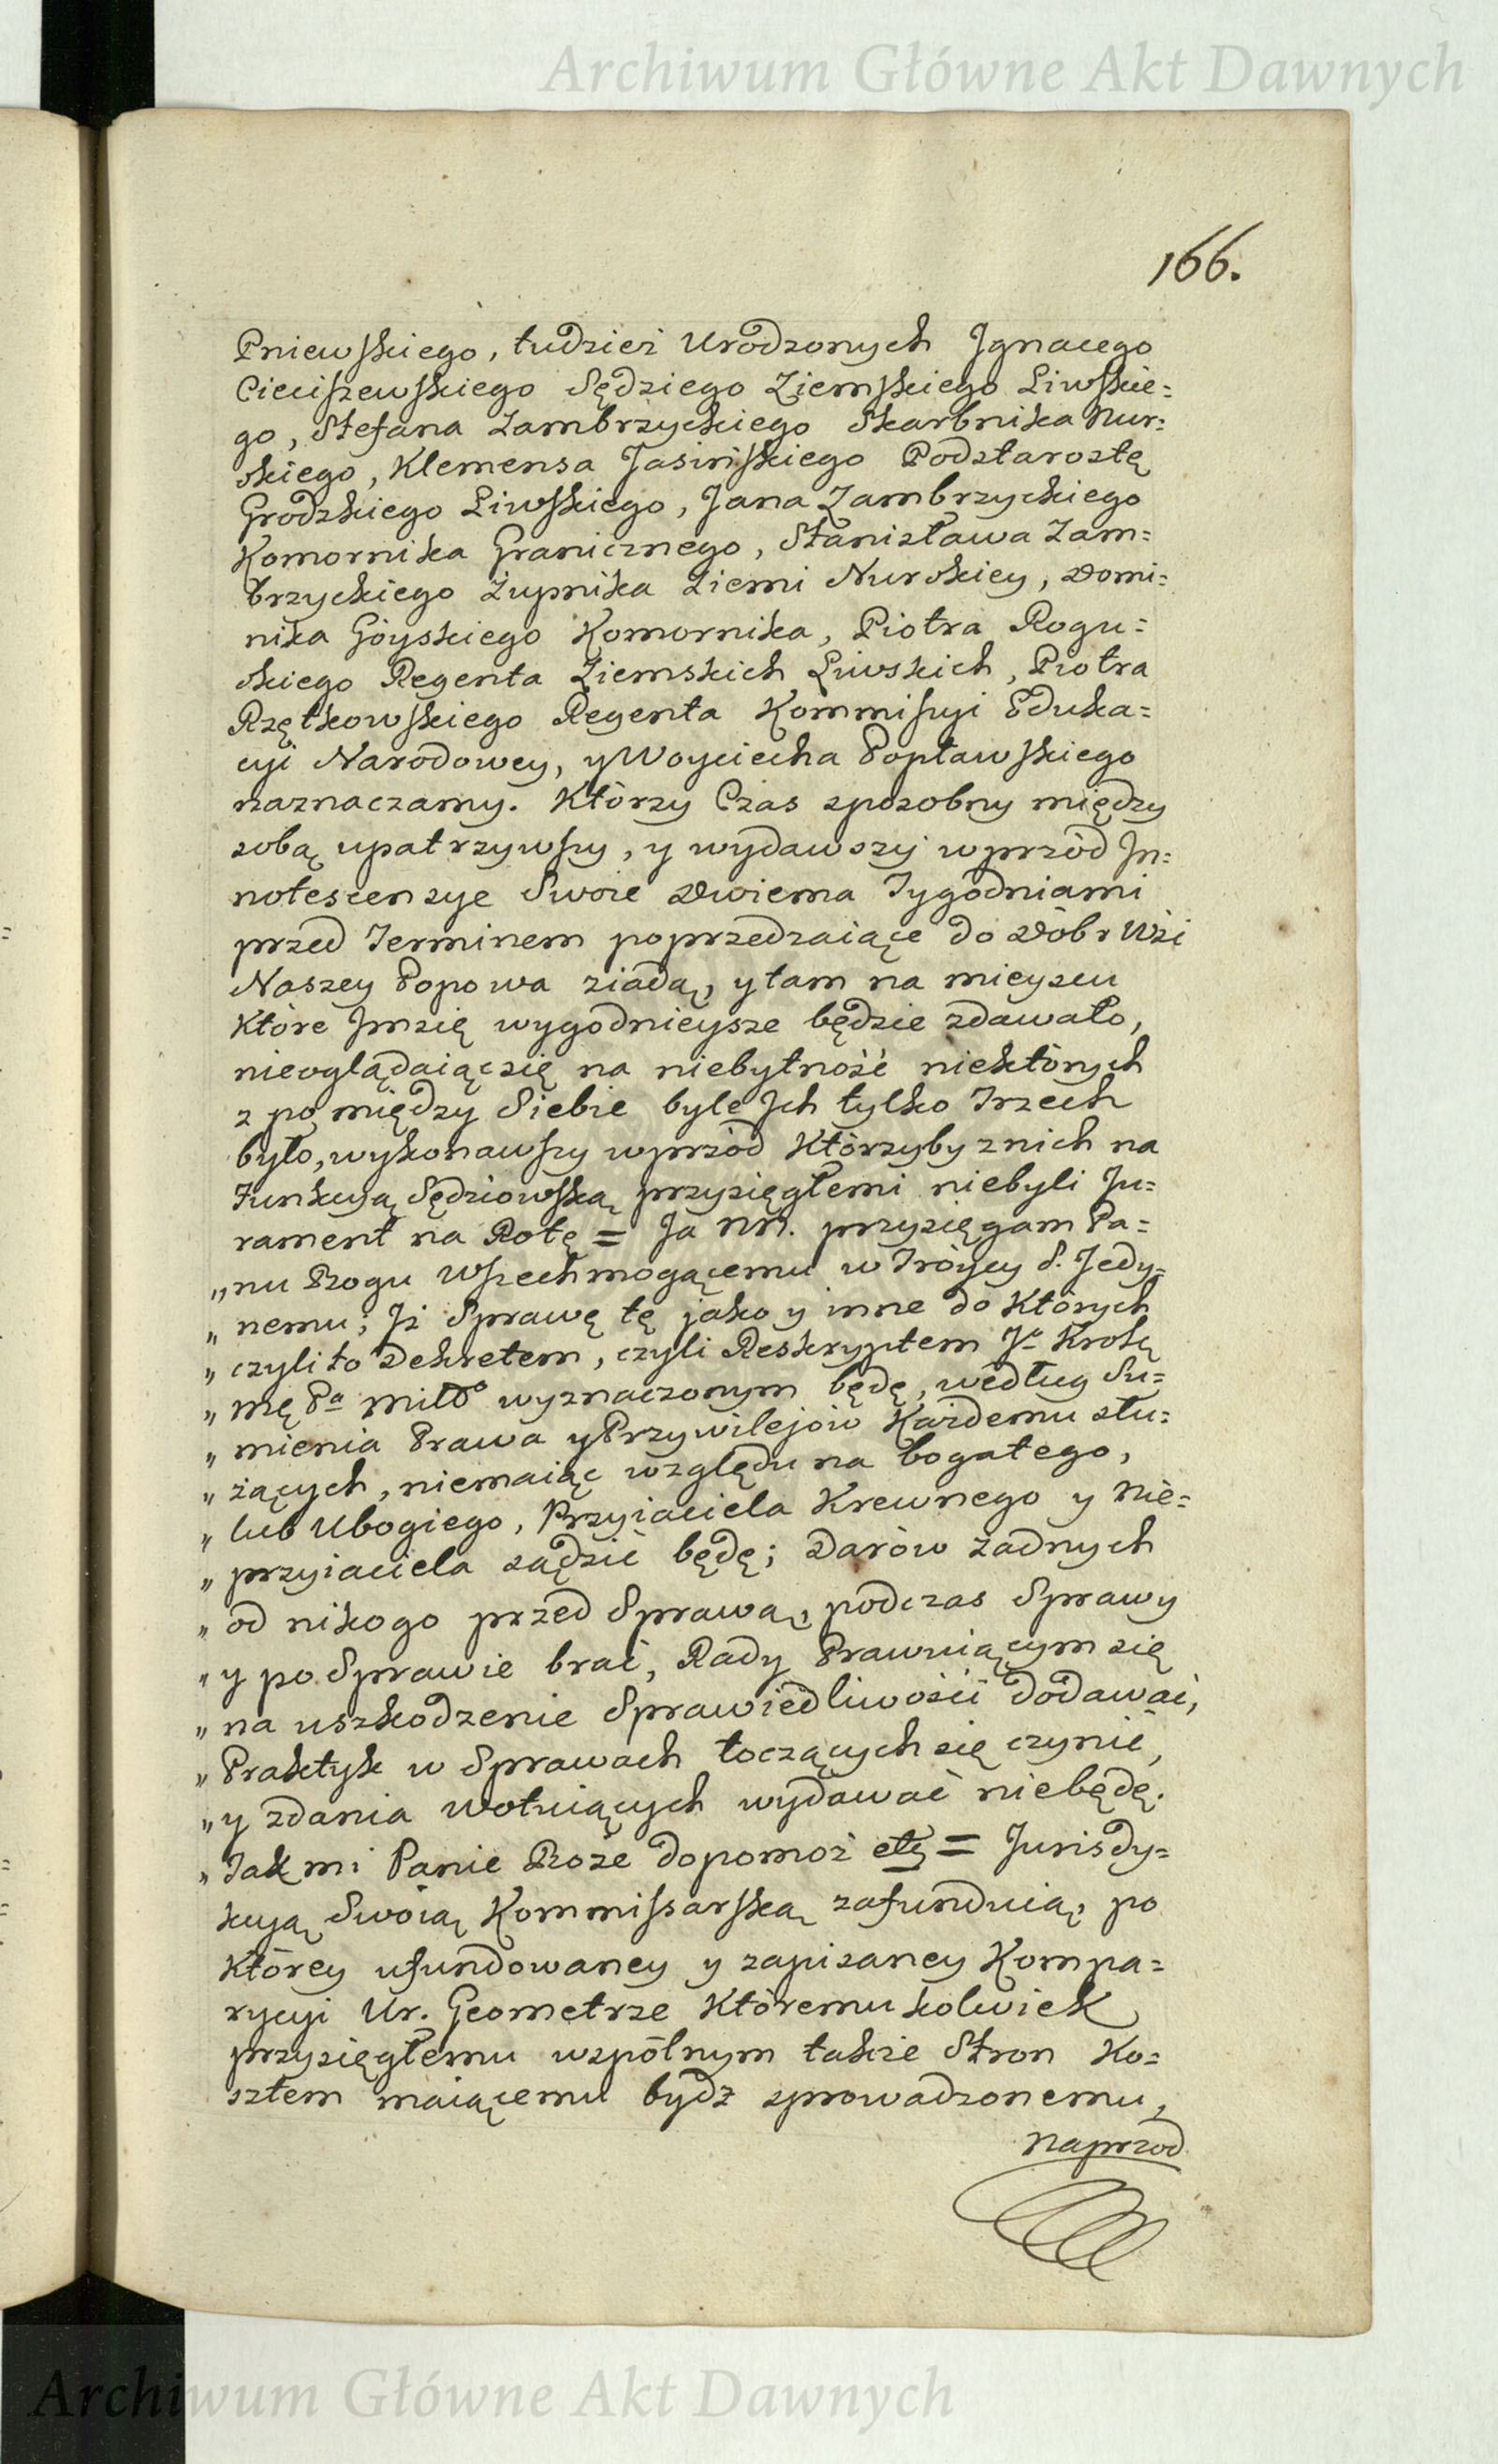 Archiwum Główne Akt Dawnych
166.
Pniewskiego, tudzież Urodzonych Jgnacego
Cieciszewskiego Sędziego Ziemskiego Liwskie=
go, Stefana Zambrzyckiego Skarbnika Nur=
skiego, Klemensa Jasińskiego Podstarostę
Grodzkiego Liwskiego, Jana Zambrzyckiego
Komornika Granicznego, Stanisława Zam=
brzyckiego Żupnika Ziemi Nurskiey, Domi=
nika Góyskiego Komornika, Piotra Rogu=
skiego Regenta Ziemskich Liwskich, Piotra
Rzętkowskiego Regenta Kommissyi Eduka=
cyi Narodowey, y Woyciecha Popławskiego
naznaczamy. Którzy Czas sposobny między
sobą upatrzywszy, y wydawszy wprzód Jn=
notescensye Swoie Dwiema Tygodniami
przed Terminem poprzedzaiące do Dóbr Wsi
Naszey Popowa ziadą, y tam na mieyscu
które Jmsię wygodnieysze będzie zdawało,
nieoglądaiąc się na niebytność niektórych
z po między Siebie byle Jch tylko Trzech
było, wykonawszy wprzód Którzyby z nich na
Funkcyą Sędziowską przysięgłemi niebyli Ju=
rament na Rotę = Ja NN. przysięgam Pa=
„ nu Bogu Wszechmogącemu w Tróycy S. Jedy=
„ nemu; Jż Sprawę tę jako y inne do Których
„ czyli to Dekretem, czyli Reskryptem Jº Krolę
„ mę Pª Miłº wyznaczonym będę, według Su=
„ mienia Prawa y Przywilejów Każdemu słu=
„ żących, niemaiąc względu na bogatego,
„ lub Ubogiego, Przyiaciela Krewnego y Nie=
„ przyiaciela sądzić będę; Darów żadnych
„ od nikogo przed Sprawą, podczas Sprawy
„ y po Sprawie brać, Rady Prawuiącym się
„ na uszkodzenie Sprawiedliwości dodawać,
„ Praktyk w Sprawach toczących się czynić,
„ y zdania wotuiących wydawać niebędę.
„ Tak mi Panie Boże dopomoż etc = Jurisdy=
kcyą Swoią Kommissarską zafunduią, po
Którey ufundowaney y zapisaney Kompa=
rycyi Ur. Geometrze Któremukolwiek
przysięgłemu wspólnym także Stron Ko=
sztem maiącemu bydź sprowadzonemu,
naprzod
Archiwum Główne Akt Dawnych